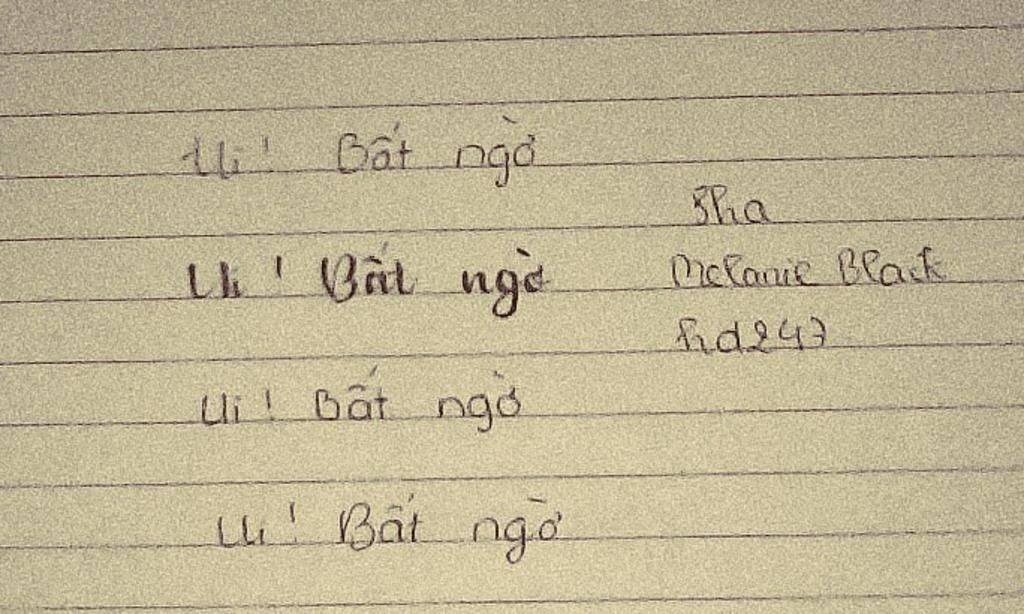 Ui! Bất ngờ
Sha
Ui! Bất ngờ
Melanie Black
hd247
Ui! Bất ngờ
Ui! Bất ngờ